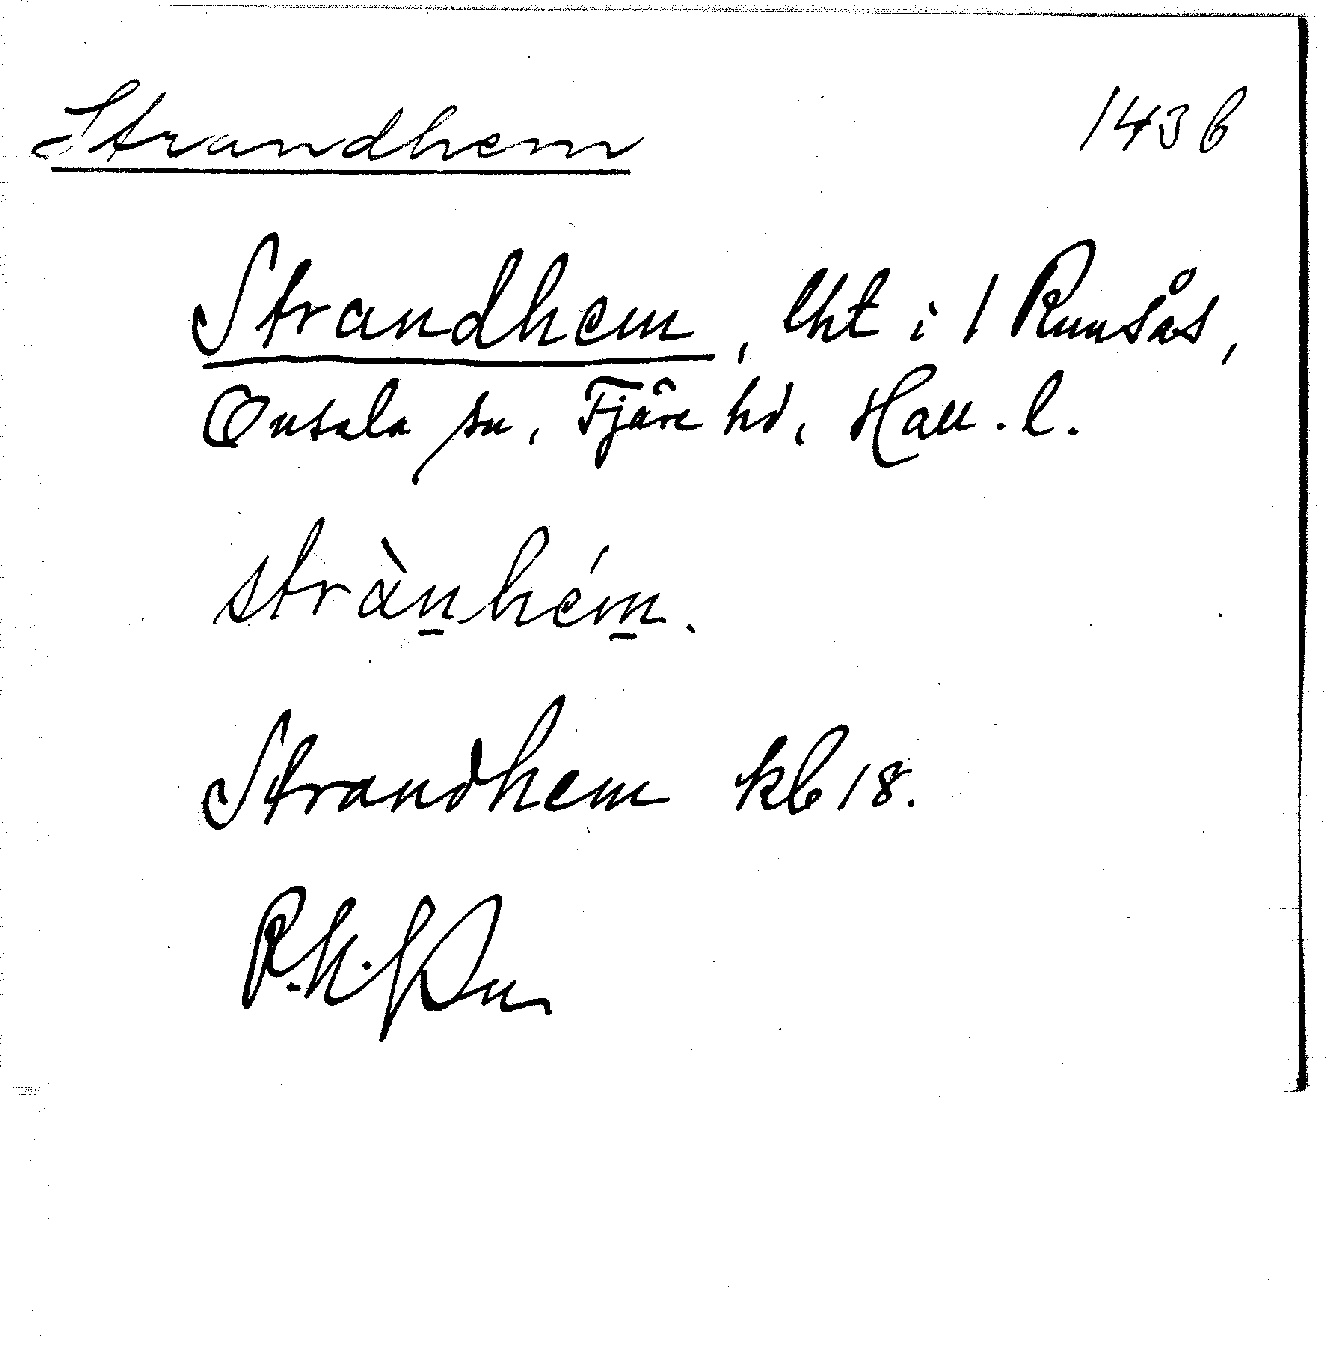 Strandhem 1436
Strandhem, lht i 1 Runsås,
Onsala sn, Fjäre hd, Hall. l.
strànhém.
Strandhem kb 18.